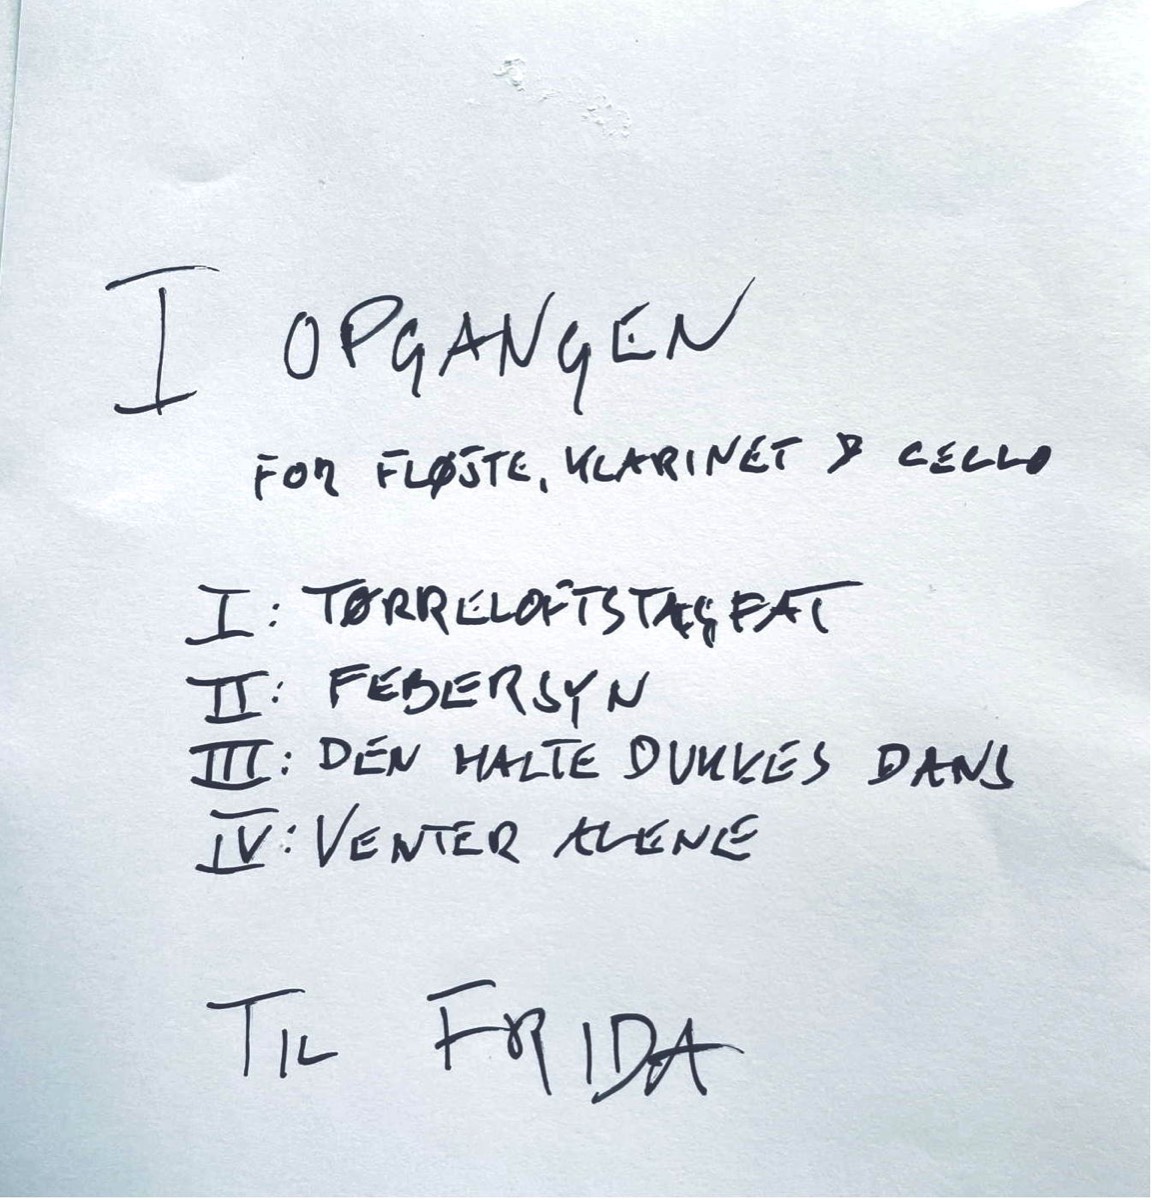 I OPGANGEN
FOR FLØJTE, KLARINET & CELLO
I: TØRRELOFTSTAGFAT
II: FEBERSYN
III: DEN HALTE DUKKES DANS
IV: VENTER ALENE
TIL FRIDA